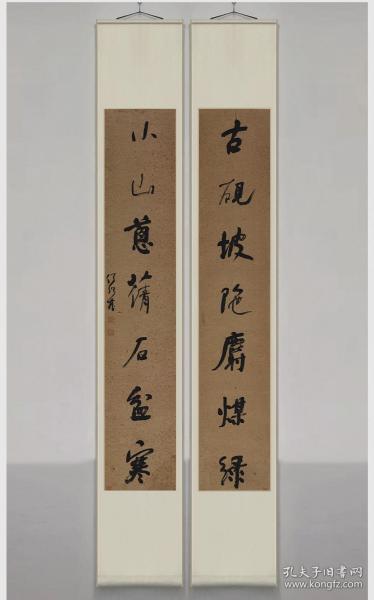 古砚坡陁麝煤绿
小山蒽蒨石盆寒
何绍基
孔夫子旧书网
www.kongfz.com